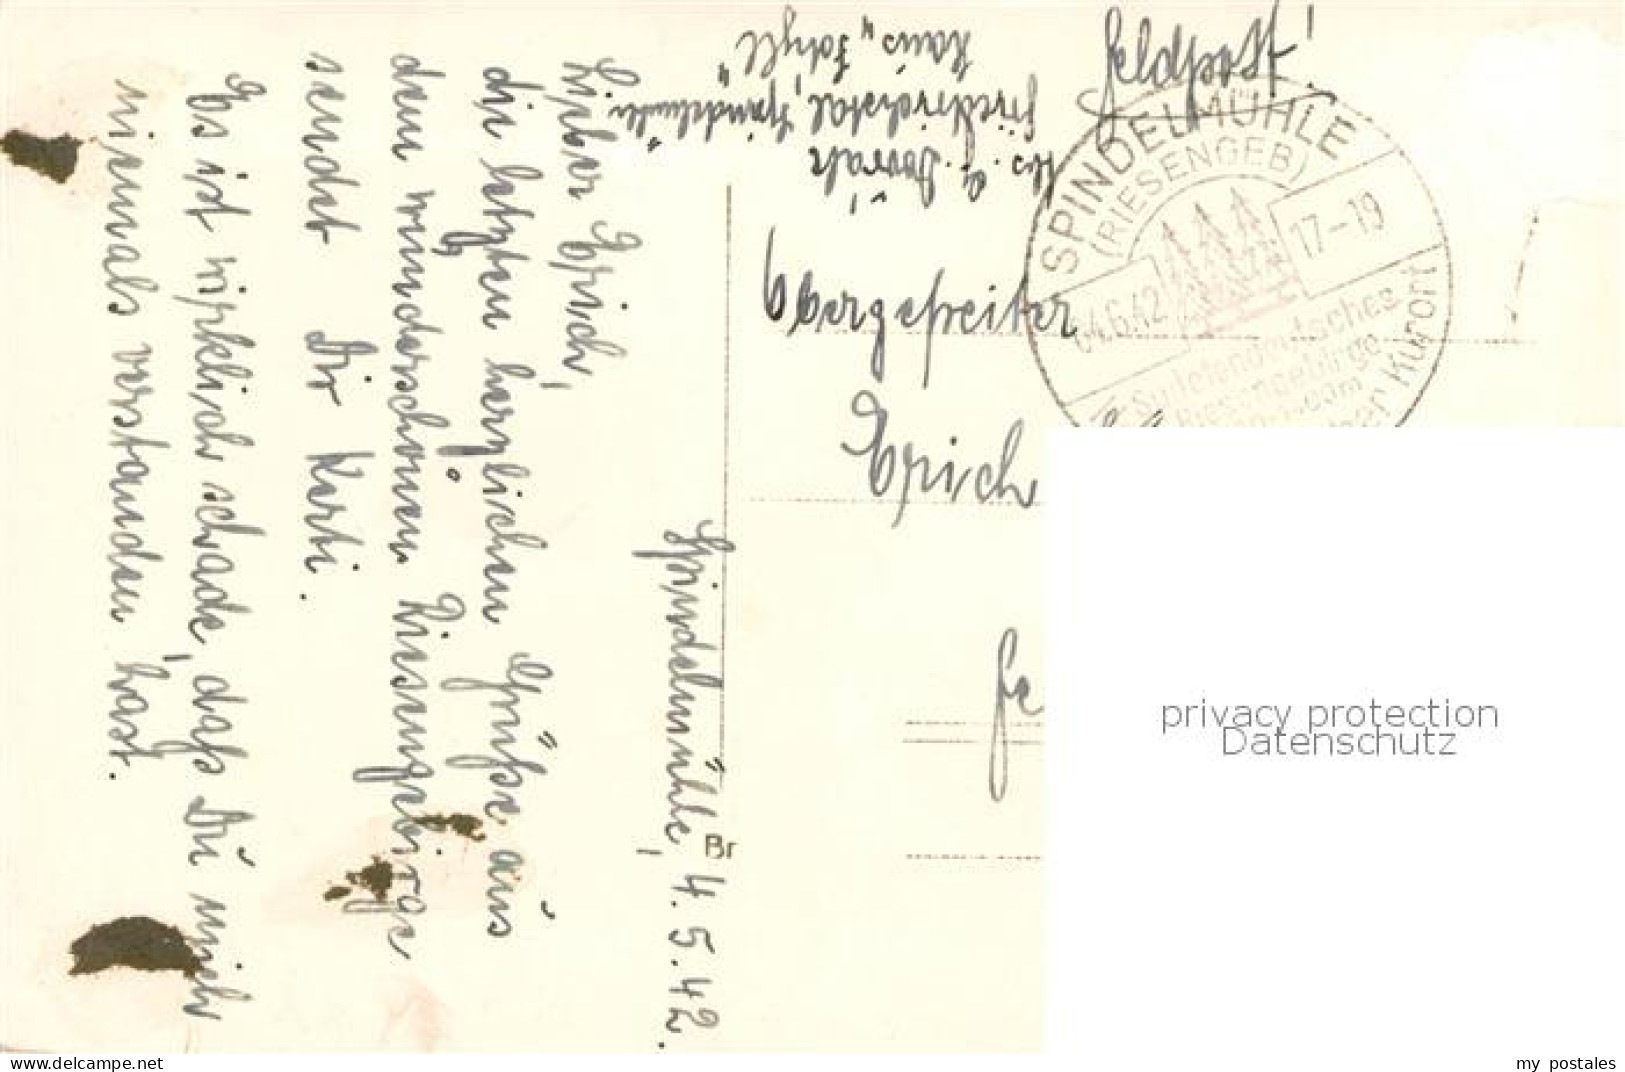 Spindelmühle, 4. 5. 42.
Lieber Erich,
die letzten herzlichen Grüße aus
dem wunderschönen Riesengebirge
sendet Dir Kerti.
Es ist wirklich schade, daß Du mich
niemals verstanden hast.
Abs. G. Dovrák
Friedrichstal, Spindelmühle
Haus „Idyll“
Feldpost!
SPINDELMÜHLE
(RIESENGEB)
17-19
04.6.42
Sudetendeutsches
Riesengebirge
Kurort
Obergefreiter
Erich
Fe
Br
privacy protection
Datenschutz
my postales